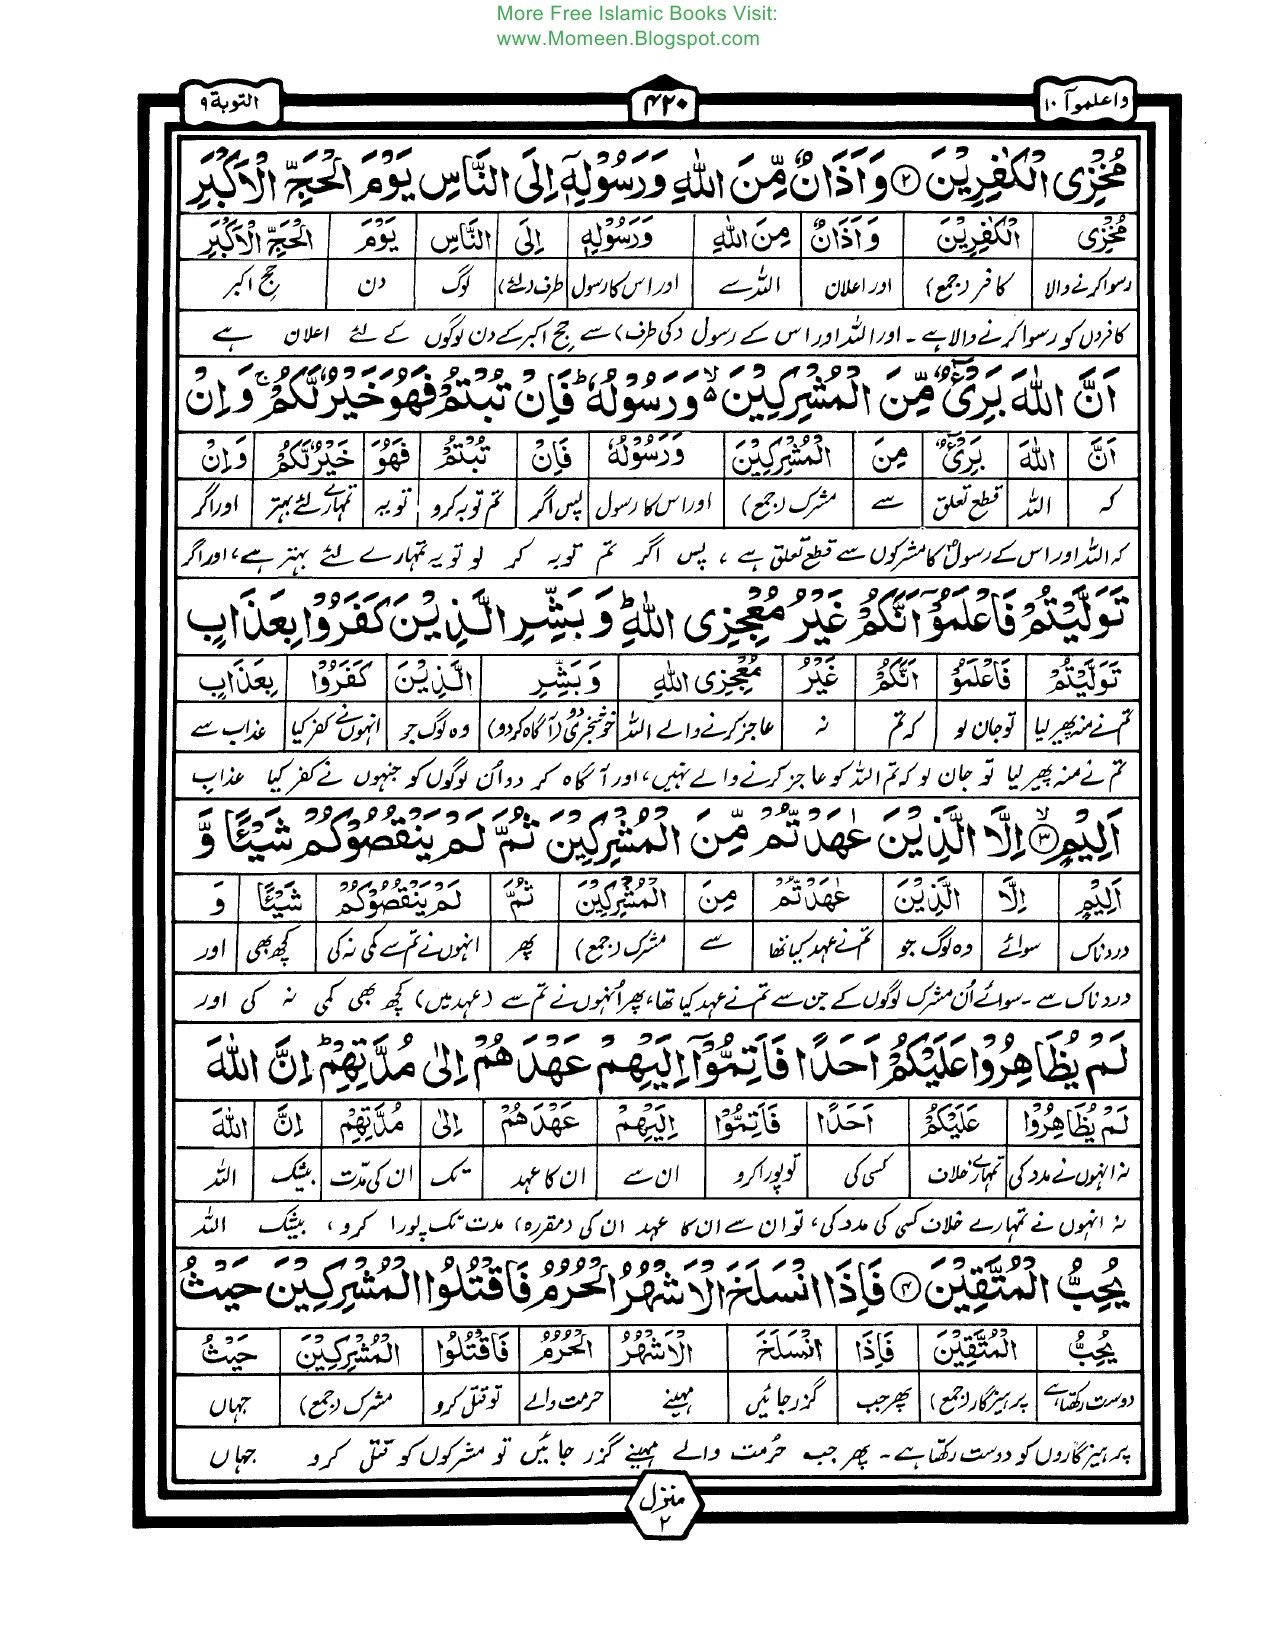 More Free Islamic Books Visit:
www.Momeen.Blogspot.com
واعلموآ ۱۰
۴۲۰
التوبة ۹
مُخْزِی الْكٰفِرِیْنَ ۲ وَاَذَانٌ مِّنَ اللّٰهِ وَرَسُوْلِهٖۤ اِلَی النَّاسِ یَوْمَ الْحَجِّ الْاَكْبَرِ
مُخْزِی الْكٰفِرِیْنَ وَاَذَانٌ مِنَ اللّٰهِ وَرَسُوْلِهٖ اِلَی النَّاسِ یَوْمَ الْحَجِّ الْاَكْبَرِ
رسوا کرنے والا کافر (جمع) اور اعلان اللہ سے اور اس کا رسول طرف (لئے) لوگ دن حج اکبر
کافروں کو رسوا کرنے والا ہے۔ اور اللہ اور اس کے رسول (کی طرف) سے حج اکبر کے دن لوگوں کے لئے اعلان ہے
اَنَّ اللّٰهَ بَرِیْٓءٌ مِّنَ الْمُشْرِكِیْنَ ۵ۙ وَرَسُوْلُهٗ ؕ فَاِنْ تُبْتُمْ فَهُوَ خَیْرٌ لَّكُمْ ۚ وَاِنْ
اَنَّ اللّٰهَ بَرِیْٓءٌ مِنَ الْمُشْرِكِیْنَ وَرَسُوْلُهٗ فَاِنْ تُبْتُمْ فَهُوَ خَیْرٌ لَّكُمْ وَاِنْ
کہ اللہ قطع تعلق سے مشرک (جمع) اور اس کا رسول پس اگر تم توبہ کرو تو یہ تمہارے لئے بہتر اور اگر
کہ اللہ اور اس کے رسولؐ کا مشرکوں سے قطع تعلق ہے، پس اگر تم توبہ کر لو تو یہ تمہارے لئے بہتر ہے، اور اگر
تَوَلَّیْتُمْ فَاعْلَمُوْۤا اَنَّكُمْ غَیْرُ مُعْجِزِی اللّٰهِ ؕ وَبَشِّرِ الَّذِیْنَ كَفَرُوْا بِعَذَابٍ
تَوَلَّیْتُمْ فَاعْلَمُوْ اَنَّكُمْ غَیْرُ مُعْجِزِی اللّٰهِ وَبَشِّرِ الَّذِیْنَ كَفَرُوْا بِعَذَابٍ
تم نے منہ پھیر لیا تو جان لو کہ تم نہ عاجز کرنے والے اللہ خوشخبری دو (آگاہ کر دو) وہ لوگ جو انہوں نے کفر کیا عذاب سے
تم نے منہ پھیر لیا تو جان لو کہ تم اللہ کو عاجز کرنے والے نہیں، اور آگاہ کر دو اُن لوگوں کو جنہوں نے کفر کیا عذاب
اَلِیْمٍ ۳ۙ اِلَّا الَّذِیْنَ عٰهَدْتُّمْ مِّنَ الْمُشْرِكِیْنَ ثُمَّ لَمْ یَنْقُصُوْكُمْ شَیْئًا وَّ
اَلِیْمٍ اِلَّا الَّذِیْنَ عٰهَدْتُّمْ مِنَ الْمُشْرِكِیْنَ ثُمَّ لَمْ یَنْقُصُوْكُمْ شَیْئًا وَ
دردناک سوائے وہ لوگ جو تم نے عہد کیا تھا سے مشرک (جمع) پھر انہوں نے تم سے کمی نہ کی کچھ بھی اور
دردناک سے۔ سوائے اُن مشرک لوگوں کے جن سے تم نے عہد کیا تھا، پھر اُنہوں نے تم سے (عہد میں) کچھ بھی کمی نہ کی اور
لَمْ یُظَاهِرُوْا عَلَیْكُمْ اَحَدًا فَاَتِمُّوْۤا اِلَیْهِمْ عَهْدَهُمْ اِلٰی مُدَّتِهِمْ ؕ اِنَّ اللّٰهَ
لَمْ یُظَاهِرُوْا عَلَیْكُمْ اَحَدًا فَاَتِمُّوْا اِلَیْهِمْ عَهْدَهُمْ اِلٰی مُدَّتِهِمْ اِنَّ اللّٰهَ
نہ انہوں نے مدد کی تمہارے خلاف کسی کی تو پورا کرو ان سے ان کا عہد تک ان کی مدّت بیشک اللہ
نہ انہوں نے تمہارے خلاف کسی کی مدد کی، تو ان سے ان کا عہد ان کی (مقررہ) مدت تک پورا کرو، بیشک اللہ
یُحِبُّ الْمُتَّقِیْنَ ۴ فَاِذَا انْسَلَخَ الْاَشْهُرُ الْحُرُمُ فَاقْتُلُوا الْمُشْرِكِیْنَ حَیْثُ
یُحِبُّ الْمُتَّقِیْنَ فَاِذَا انْسَلَخَ الْاَشْهُرُ الْحُرُمُ فَاقْتُلُوا الْمُشْرِكِیْنَ حَیْثُ
دوست رکھتا ہے پرہیزگار (جمع) پھر جب گزر جائیں مہینے حرمت والے تو قتل کرو مشرک (جمع) جہاں
پرہیزگاروں کو دوست رکھتا ہے۔ پھر جب حُرمت والے مہینے گزر جائیں تو مشرکوں کو قتل کرو جہاں
منزل
۲